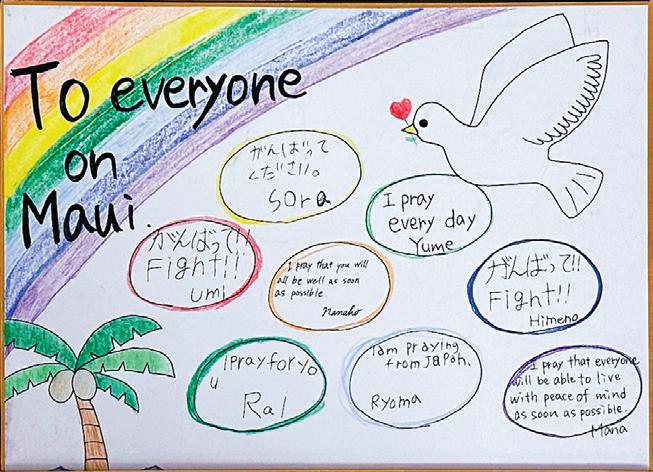 To everyone
on
Maui.
がんばって
ください。
Sora
I pray
every day
Yume
がんばって!!
Fight!!
Umi
I pray that you will
all be well as soon
as possible
Nanaho
がんばって!!
Fight!!
Himeno
I pray for yo
u
Ral
I am praying
from Japan.
Ryoma
I pray that everyone
will be able to live
with peace of mind
as soon as possible.
Mana